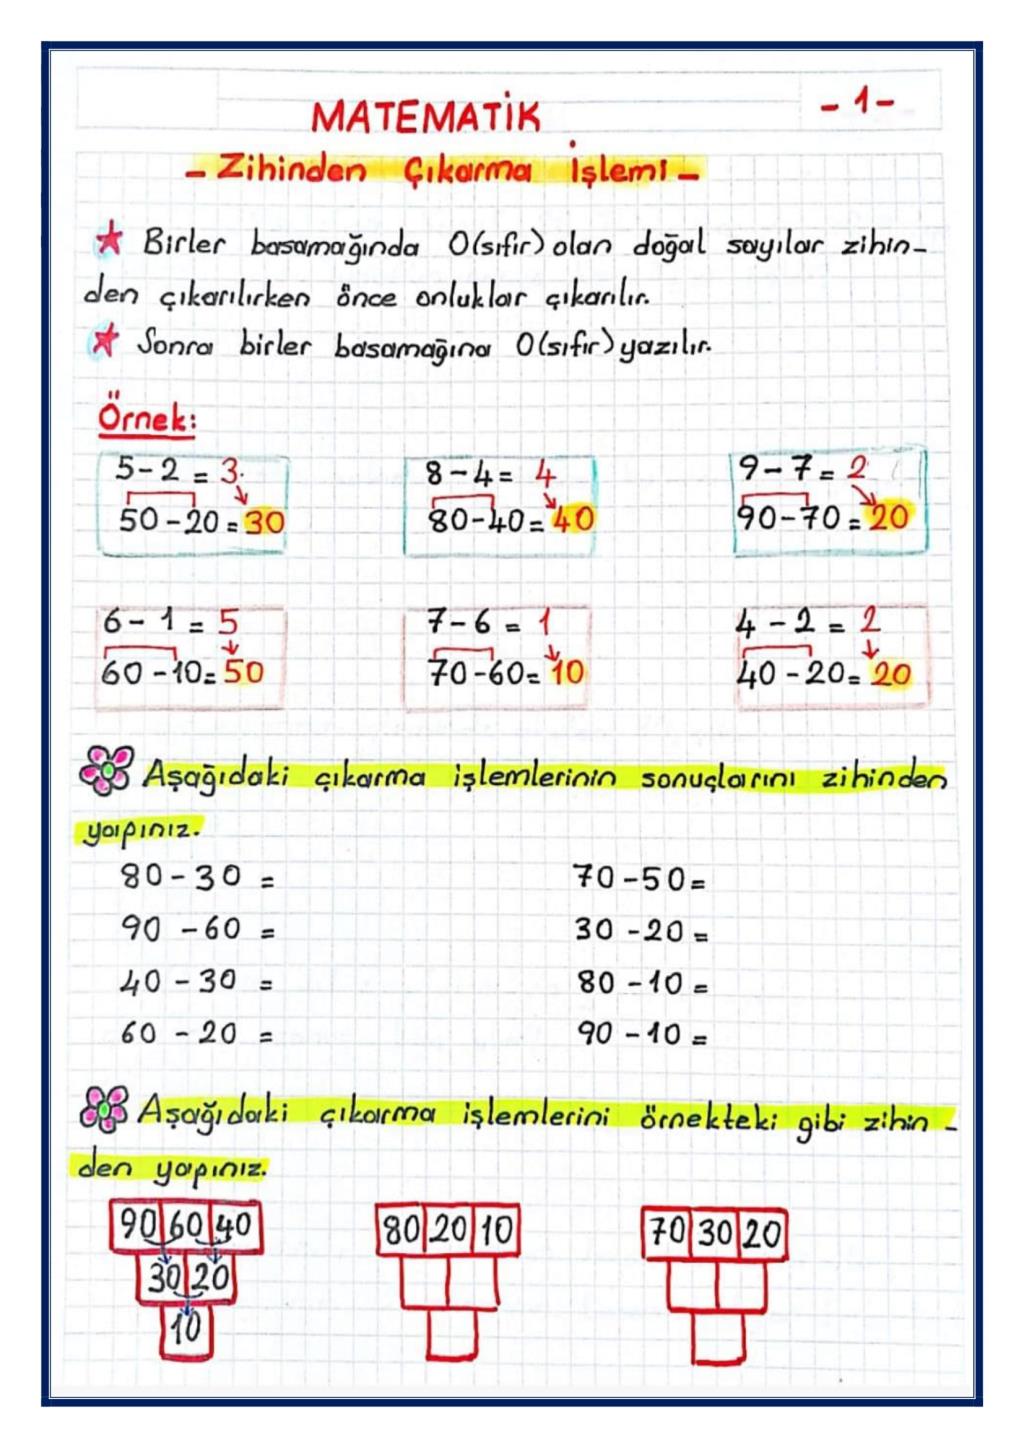 MATEMATİK
- 1 -
- Zihinden Çıkarma İşlemi -
Birler basamağında 0(sıfır) olan doğal sayılar zihin-
den çıkarılırken önce onluklar çıkarılır.
Sonra birler basamağına 0(sıfır) yazılır.
Örnek:
5 - 2 = 3
50 - 20 = 30
8 - 4 = 4
80 - 40 = 40
9 - 7 = 2
90 - 70 = 20
6 - 1 = 5
60 - 10 = 50
7 - 6 = 1
70 - 60 = 10
4 - 2 = 2
40 - 20 = 20
Aşağıdaki çıkarma işlemlerinin sonuçlarını zihinden
yapınız.
80 - 30 =
70 - 50 =
90 - 60 =
30 - 20 =
40 - 30 =
80 - 10 =
60 - 20 =
90 - 10 =
Aşağıdaki çıkarma işlemlerini örnekteki gibi zihin -
den yapınız.
90 60 40
30 20
10
80 20 10
70 30 20